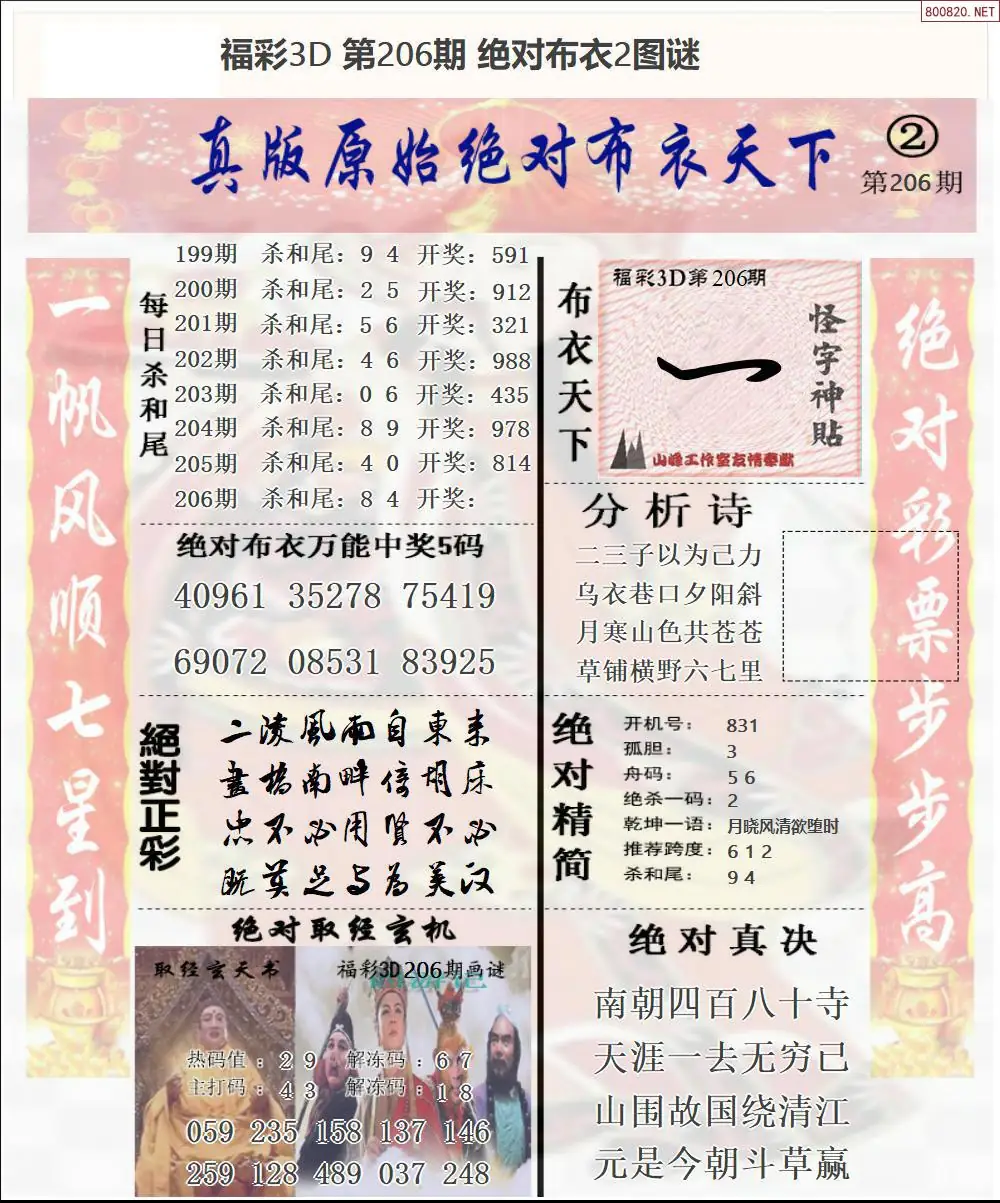 800820.NET
福彩3D 第206期 绝对布衣2图谜
真版原始绝对布衣天下
②
第206期
一帆风顺七星到
每日杀和尾
199期 杀和尾：9 4 开奖：591
200期 杀和尾：2 5 开奖：912
201期 杀和尾：5 6 开奖：321
202期 杀和尾：4 6 开奖：988
203期 杀和尾：0 6 开奖：435
204期 杀和尾：8 9 开奖：978
205期 杀和尾：4 0 开奖：814
206期 杀和尾：8 4 开奖：
绝对布衣万能中奖5码
40961 35278 75419
69072 08531 83925
絕對正彩
二陵風雨自東来
畫橋南畔倚胡床
忠不必用賢不必
既莫足与为美汉
绝对取经玄机
取经玄天书
福彩3D206期画谜
热码值：2 9 解冻码：6 7
主打码：4 3 解冻码：1 8
059 235 158 137 146
259 128 489 037 248
布衣天下
福彩3D第206期
一
怪字神贴
山峰工作室友情奉献
分析诗
二三子以为己力
乌衣巷口夕阳斜
月寒山色共苍苍
草铺横野六七里
绝对精简
开机号： 831
孤胆： 3
舟码： 5 6
绝杀一码：2
乾坤一语：月晓风清欲堕时
推荐跨度：6 1 2
杀和尾： 9 4
绝对真决
南朝四百八十寺
天涯一去无穷己
山围故国绕清江
元是今朝斗草赢
绝对彩票步步高